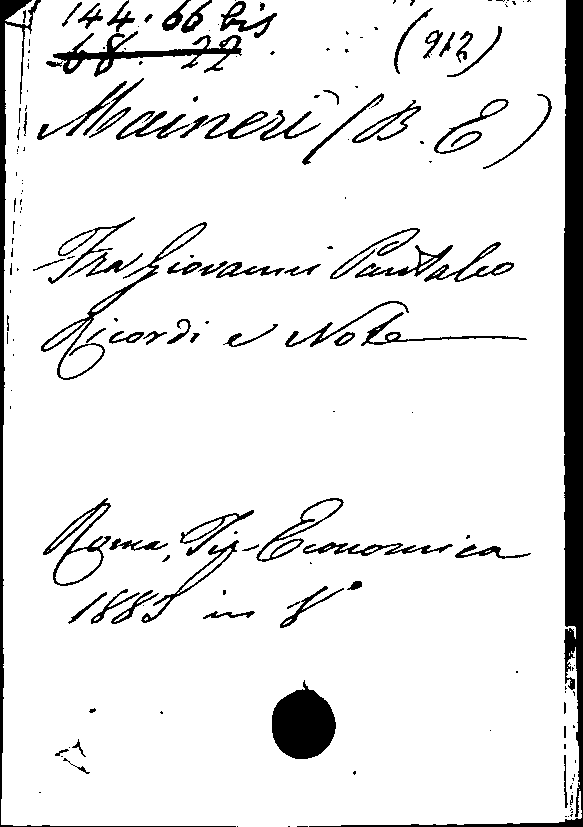 144. 66 bis
68. 22
(912)
Maineri (B. E)
Fra Giovanni Pantaleo
Ricordi e Note
Roma, Tip. Economica
1883 in 8°